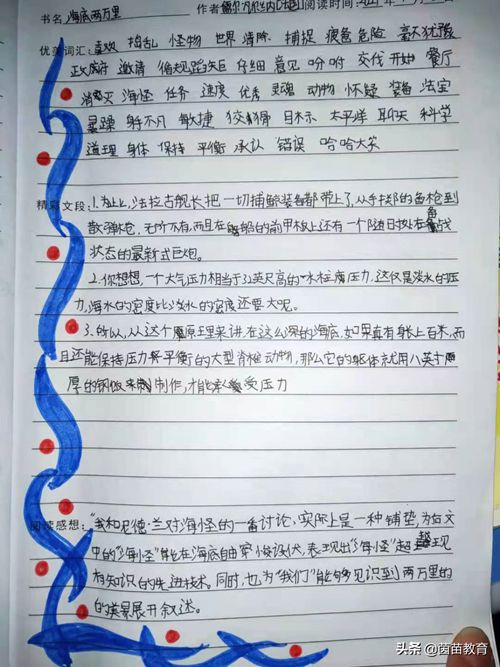 书名:海底两万里 作者 儒尔·凡尔纳[法] 阅读时间:
优美词汇:喜欢 捣乱 怪物 世界 消除 捕捉 疲惫 危险 毫不犹豫
政府 邀请 循规蹈矩 仔细 意见 吩咐 交代 开始 餐厅
消灭 海怪 任务 速度 优秀 灵魂 动物 怀疑 装备 法宝
暴躁 身手不凡 敏捷 目标 太平洋 聊天 科学
道理 身体 保持 平衡 承认 错误 哈哈大笑
精彩文段:1.为此,法拉古舰长把一切捕鲸装备都带上了,从手掷的鱼枪到
散弹枪,无所不有,而且在船的前甲板上还有一个随时处在备战
状态的最新式巨炮。
2.你想想,一个大气压力相当于32英尺高的一水柱压力,这仅是淡水的压
力,海水的密度比淡水的密度还要大呢。
3.所以,从这个原理来讲在这么深的海底,如果真有身长上百米,而
且还能保持压力平衡的大型脊椎动物,那么它的躯体就用八英寸
厚的钢板来制作,才能承受压力
阅读感想:"我和尼德·兰对海怪的一番讨论,实际上是一种铺垫,为后文
中的"海怪"能在海底自由穿梭设伏,表现出"海怪"超越现
有知识的先进技术。同时,也为"我们"能够见识到两万里的
的美景展开叙述。
头条 @茵苗教育